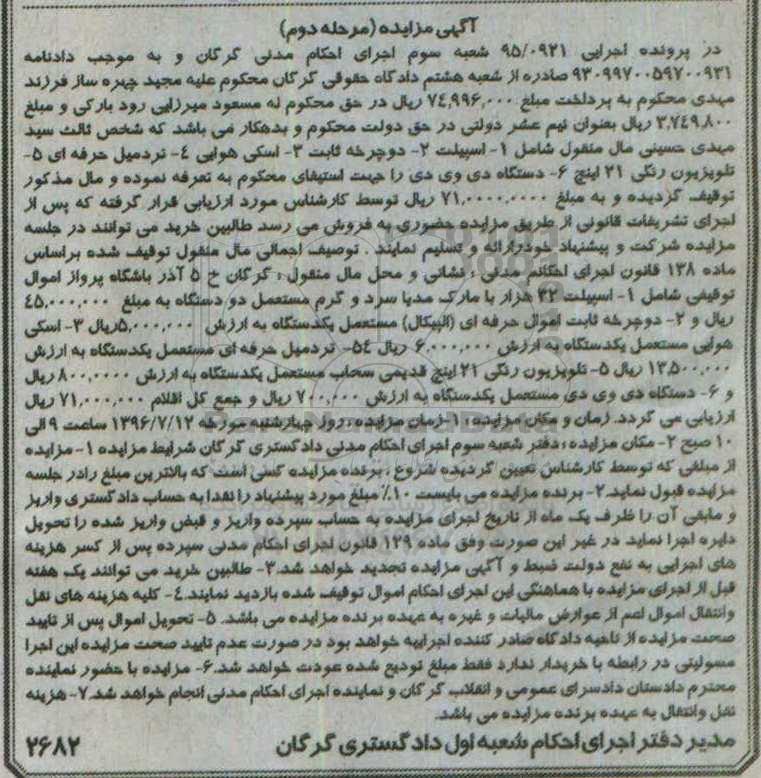 آگهی مزایده (مرحله دوم)
در پرونده اجرایی ۹۵/۰۹۲۱ شعبه سوم اجرای احکام مدنی گرگان و به موجب دادنامه
۹۳۰۹۹۷۰۰۵۹۷۰۰۹۳۱ صادره از شعبه هشتم دادگاه حقوقی گرگان محکوم علیه مجید چهره ساز فرزند
مهدی محکوم به پرداخت مبلغ ۷٤,۹۹۶,۰۰۰ ریال در حق محکوم له مسعود میرزایی رود بارکی و مبلغ
۳,۷٤۹,۸۰۰ ریال بعنوان نیم عشر دولتی در حق دولت محکوم و بدهکار می باشد که شخص ثالث سید
مهدی حسینی مال منقول شامل ۱- اسپیلت ۲- دوچرخه ثابت ۳- اسکی هوایی ٤- تردمیل حرفه ای ۵-
تلویزیون رنگی ۲۱ اینچ ۶- دستگاه دی وی دی را جهت استیفای محکوم به تعرفه نموده و مال مذکور
توقیف گردیده و به مبلغ ۷۱,۰۰۰۰,۰۰۰ ریال توسط کارشناس مورد ارزیابی قرار گرفته که پس از
اجرای تشریفات قانونی از طریق مزایده حضوری به فروش می رسد طالبین خرید می توانند در جلسه
مزایده شرکت و پیشنهاد خود را ارائه و تسلیم نمایند . توصیف اجمالی مال منقول توقیف شده براساس
ماده ۱۳۸ قانون اجرای احکام مدنی : نشانی و محل مال منقول : گرگان خ ۵ آذر باشگاه پرواز اموال
توقیفی شامل ۱- اسپیلت ۳۲ هزار با مارک مدیا سرد و گرم مستعمل دو دستگاه به مبلغ ٤۵,۰۰۰,۰۰۰
ریال و ۲- دوچرخه ثابت اموال حرفه ای (الپیکال) مستعمل یکدستگاه به ارزش ۵,۰۰۰,۰۰۰ریال ۳- اسکی
هوایی مستعمل یکدستگاه به ارزش ۶,۰۰۰,۰۰۰ ریال ٤- تردمیل حرفه ای مستعمل یکدستگاه به ارزش
۱۳,۵۰۰,۰۰۰ ریال ۵- تلویزیون رنگی ۲۱ اینچ قدیمی سحاب مستعمل یکدستگاه به ارزش ۸۰۰,۰۰۰۰ ریال
و ۶- دستگاه دی وی دی مستعمل یکدستگاه به ارزش ۷۰۰,۰۰۰ ریال و جمع کل اقلام ۷۱,۰۰۰,۰۰۰ ریال
ارزیابی می گردد. زمان و مکان مزایده : ۱-زمان مزایده : روز چهارشنبه مورخه ۱۳۹۶/۷/۱۲ ساعت ۹ الی
۱۰ صبح ۲- مکان مزایده : دفتر شعبه سوم اجرای احکام مدنی دادگستری گرگان شرایط مزایده ۱- مزایده
از مبلغی که توسط کارشناس تعیین گردیده شروع ، برنده مزایده کسی است که بالاترین مبلغ را در جلسه
مزایده قبول نماید.۲- برنده مزایده می بایست ۱۰٪ مبلغ مورد پیشنهاد را نقدا به حساب دادگستری واریز
و مابقی آن را ظرف یک ماه از تاریخ اجرای مزایده به حساب سپرده واریز و قبض واریز شده را تحویل
دایره اجرا نماید در غیر این صورت وفق ماده ۱۲۹ قانون اجرای احکام مدنی سپرده پس از کسر هزینه
های اجرایی به نفع دولت ضبط و آگهی مزایده تجدید خواهد شد.۳- طالبین خرید می توانند یک هفته
قبل از اجرای مزایده با هماهنگی این اجرای احکام اموال توقیف شده بازدید نمایند.٤- کلیه هزینه های نقل
وانتقال اموال اعم از عوارض مالیات و غیره به عهده برنده مزایده می باشد. ۵- تحویل اموال پس از تایید
صحت مزایده از ناحیه دادگاه صادر کننده اجراییه خواهد بود در صورت عدم تایید صحت مزایده این اجرا
مسولیتی در رابطه با خریدار ندارد فقط مبلغ تودیع شده عودت خواهد شد.۶- مزایده با حضور نماینده
محترم دادستان دادسرای عمومی و انقلاب گرگان و نماینده اجرای احکام مدنی انجام خواهد شد.۷- هزینه
نقل وانتقال به عهده برنده مزایده می باشد.
مدیر دفتر اجرای احکام شعبه اول دادگستری گرگان ۲۶۸۲